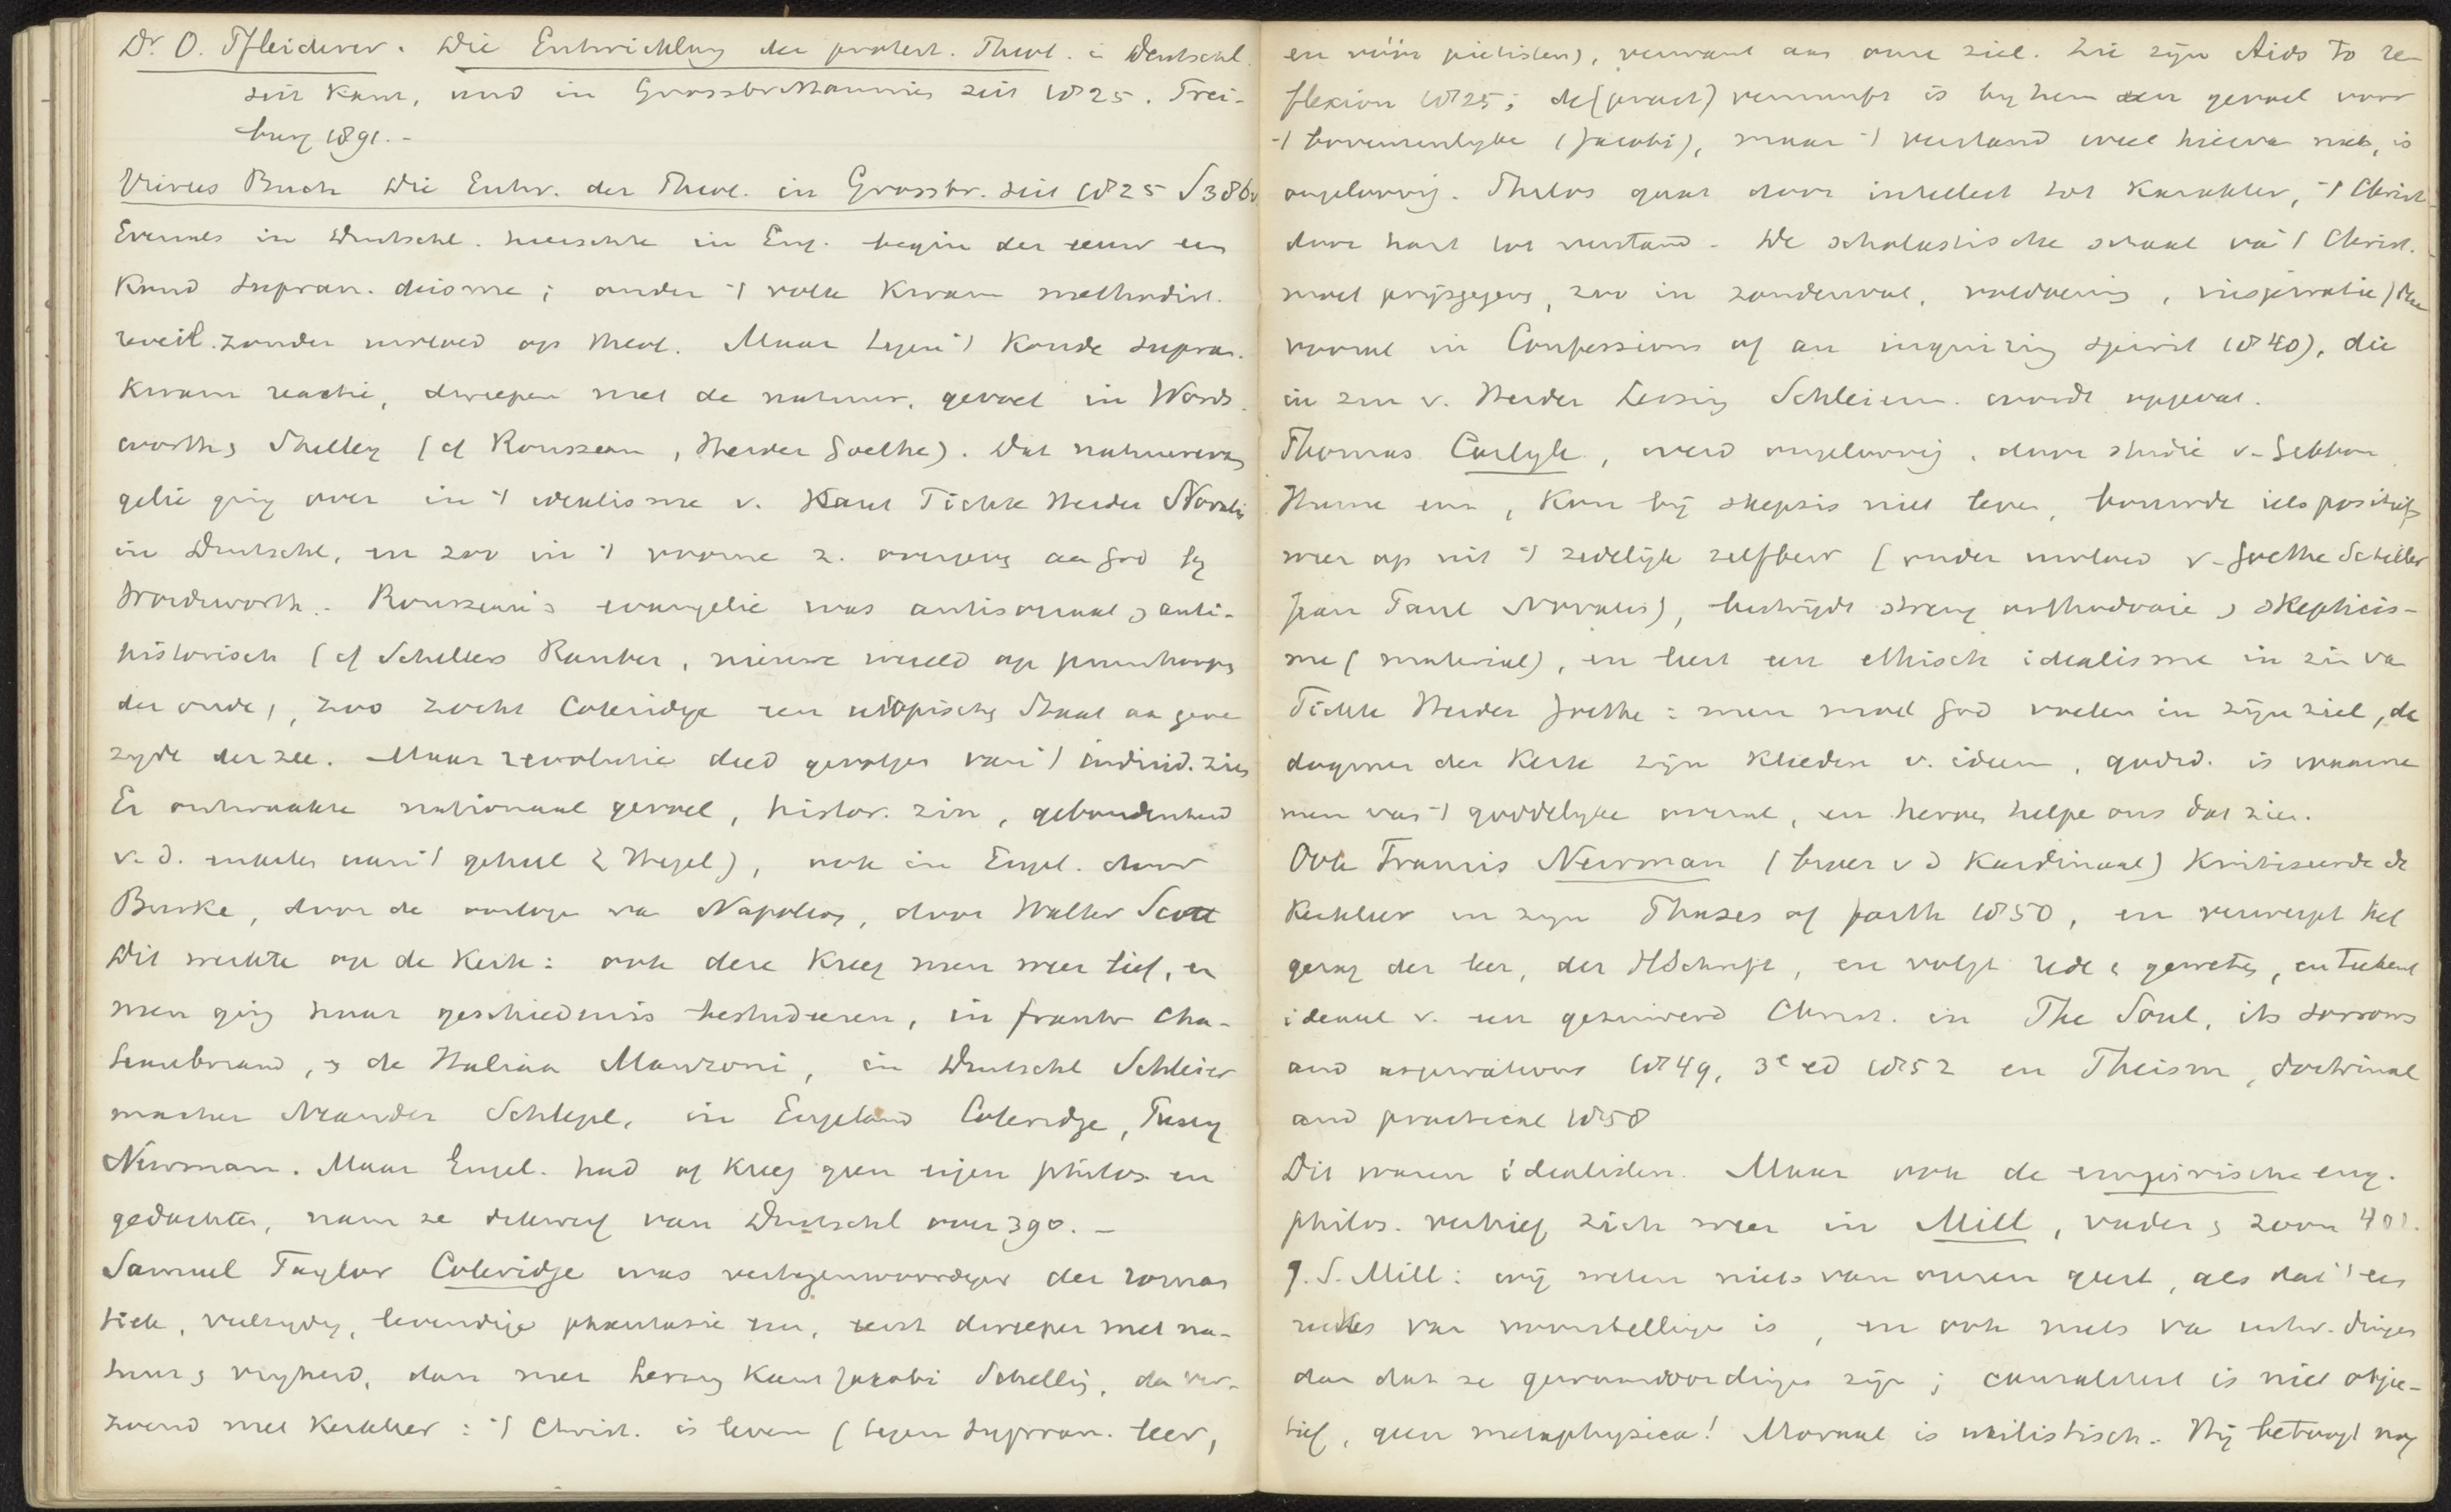 Dr. O. Pfleiderer. Die Entwicklung der protest. Theol. i Deutschl.
seit Kant, und in Grossbrittannien seit 1825. Frei-
burg 1891.-
Viertes Buch Die Entw. der Theol. in Grossbr. seit 1825 S386v
Evenals in Duitschl. heerschte in Eng. begin der eeuw een
koud supran. deisme; onder 't volk kwam methodist.
reveil. zonder invloed op theol. Maar tegen 't koude supran.
kwam reactie, dweepen met de natuur, gevoel in Words-
worth, Shelley (cf Rousseau, Herder Goethe). Dat natuurevan
gelie ging over in 't idealisme v. Kant Fichte Herder Novalis
in Duitschl, en zoo in 't vrome z. overgeven aan God by
Wordsworth.- Rousseau's evangelie was antisociaal, anti-
historisch (cf Schillers Räuber, nieuwe wereld op puinhoopen
der oude), zoo zocht Coleridge een utopischen Staat aan gene
zyde der zee. Maar revolutie deed gevolgen van 't individ. zien
Er ontwaakte nationaal gevoel, histor. zin, gebondenheid
v. d. enkelen aan 't geheel (Hegel), ook in Engel. door
Burke, door de oorlogen van Napoleon, door Walter Scott
Dit werkte op de kerk: ook deze kreeg men weer lief, en
men ging haar geschiedenis bestudeeren, in frankr Cha-
teaubriand, de Italiaan Manzoni, in Duitschl Schleier
macher Neander Schlegel, in Engeland Coleridge, Pusey
Newman. Maar Engel. had of kreeg geen eigen philos. en
gedachten, nam ze van Duitschl over 390. -
Samuel Taylor Coleridge was vertegenwoordiger der roman
tiek, veelzydig, levendige phantasie enz, eerst dweepen met na-
tuur, vryheid, dan met Lessing Kant Jacobi Schelling, dan ver-
zoend met kerkleer: 't Christ. is leven (tegen supran. leer,
en vóór pietisten), verwant aan onze ziel. Zie zijn Aids to re-
flexion 1825; de (pract) vernunft is by hem een gevoel voor
't bovenzinlyke (Jacobi), maar 't verstand weet hiervan niets, is
ongeloovig. Philos gaat door intellect tot karakter, 't Christ-
door hart tot verstand. De scholastische schaal van 't Christ.
moet prijsgegeven, zoo in zondenval, voldoening, inspiratie (die
vooral in Confessions of an inquiring spirit 1840), die
in zin v. Herder Lessing Schleierm. wordt opgevat.
Thomas Carlyle, werd ongeloovig, door studie v. Gibbon
Hume enz, kon bij skepsis niet leven, bouwde iets positiefs
weer op uit 't zedelijk zelfbew (onder invloed v. Goethe Schiller
Jean Paul Novalis), bestrijdt streng orthodoxie, skepticis-
me (material), en leert een ethisch idealisme in zin van
Fichte Herder Goethe: men moet God voelen in zijn ziel, de
dogmen der kerk zijn kleeden v. ideen, godsd. is waarne
men van 't goddelyke overal, en heroes helpen ons dat zien.
Ook Francis Newman (broer v d Kardinaal) kritiseerde de
kerkleer in zyn Phases of faith 1850, en verwerpt het
gezag der leer, der HSchrift, en volgt rede & geweten, en teekent
ideaal v. een gezuiverd Christ. in The Soul, its sorrows
and aspirations 1849, 3e ed 1852 en Theism, doctrinal
and practical 1858
Dit waren idealisten. Maar ook de empirische eng.
philos. verhief zich weer in Mill, vader, zoon 401.
J. S. Mill: wij weten niets van onzen geest, als dat 't een
reeks van voorstellingen is, en ook niets van uitw. dingen
dan dat ze gewaarwordingen zijn; causaliteit is niet objec-
tief, geen metaphysica! Moraal is utilistisch. Hij betoogt nog